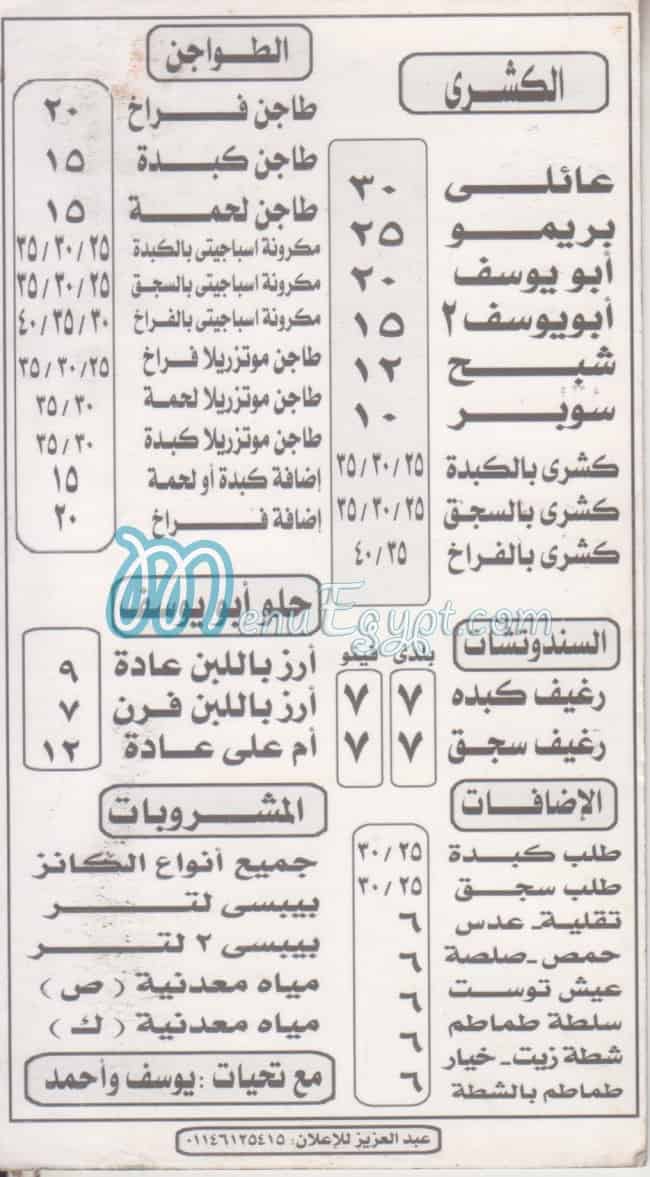 الكشرى
عائلى ٣٠
بريمو ٢٥
أبو يوسف ٢٠
أبويوسف ٢ ١٥
شبح ١٢
سوبر ١٠
كشرى بالكبدة ٢٥ / ٣٠ / ٣٥
كشرى بالسجق ٢٥ / ٣٠ / ٣٥
كشرى بالفراخ ٣٥ / ٤٠
السندوتشات
بلدى فينو
رغيف كبده ٧ ٧
رغيف سجق ٧ ٧
الإضافات
طلب كبدة ٢٥ / ٣٠
طلب سجق ٢٥ / ٣٠
تقلية - عدس ٦
حمص - صلصة ٦
عيش توست ٦
سلطة طماطم
شطة زيت - خيار ٦
طماطم بالشطة ٦
الطواجن
طاجن فراخ ٢٠
طاجن كبدة ١٥
طاجن لحمة ١٥
مكرونة اسباجيتى بالكبدة ٢٥ / ٣٠ / ٣٥
مكرونة اسباجيتى بالسجق ٢٥ / ٣٠ / ٣٥
مكرونة اسباجيتى بالفراخ ٣٠ / ٣٥ / ٤٠
طاجن موتزريلا فراخ ٢٥ / ٣٠ / ٣٥
طاجن موتزريلا لحمة ٣٠ / ٣٥
طاجن موتزريلا كبدة ٣٠ / ٣٥
إضافة كبدة أو لحمة ١٥
إضافة فراخ ٢٠
حلو أبو يوسف
أرز باللبن عادة ٩
أرز باللبن فرن ٧
أم على عادة ١٢
المشروبات
جميع أنواع الكانز
بيبسى لتر
بيبسى ٢ لتر
مياه معدنية ( ص )
مياه معدنية ( ك )
مع تحيات : يوسف وأحمد
عبد العزيز للإعلان: ٠١١٤٦١٢٥٤١٥
MenuEgypt.com